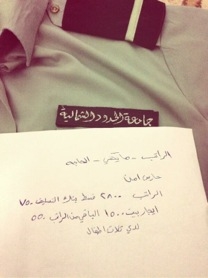 جامعة الحدود الشمالية
الراتب - ما يكفي - الحاجه
حارس امن
الراتب ٢٨٠٠ قسط بنك التسليف ٧٥٠
ايجار بيت ١٥٠٠ الباقي من الراتب ٥٥٠
لدي ثلاث اطفال